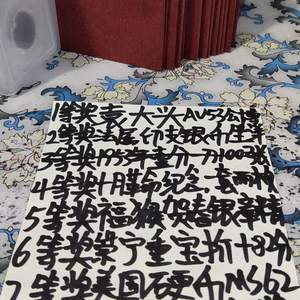 1等奖袁大头AU53公博
2等奖法属印支银币坐洋
3等奖1955年壹分一刀100张
4等奖十月革命纪念一套两枚
5等奖福猴贺春银章精
6等奖崇宁重宝折十82分
7等奖美国石硬币MS62